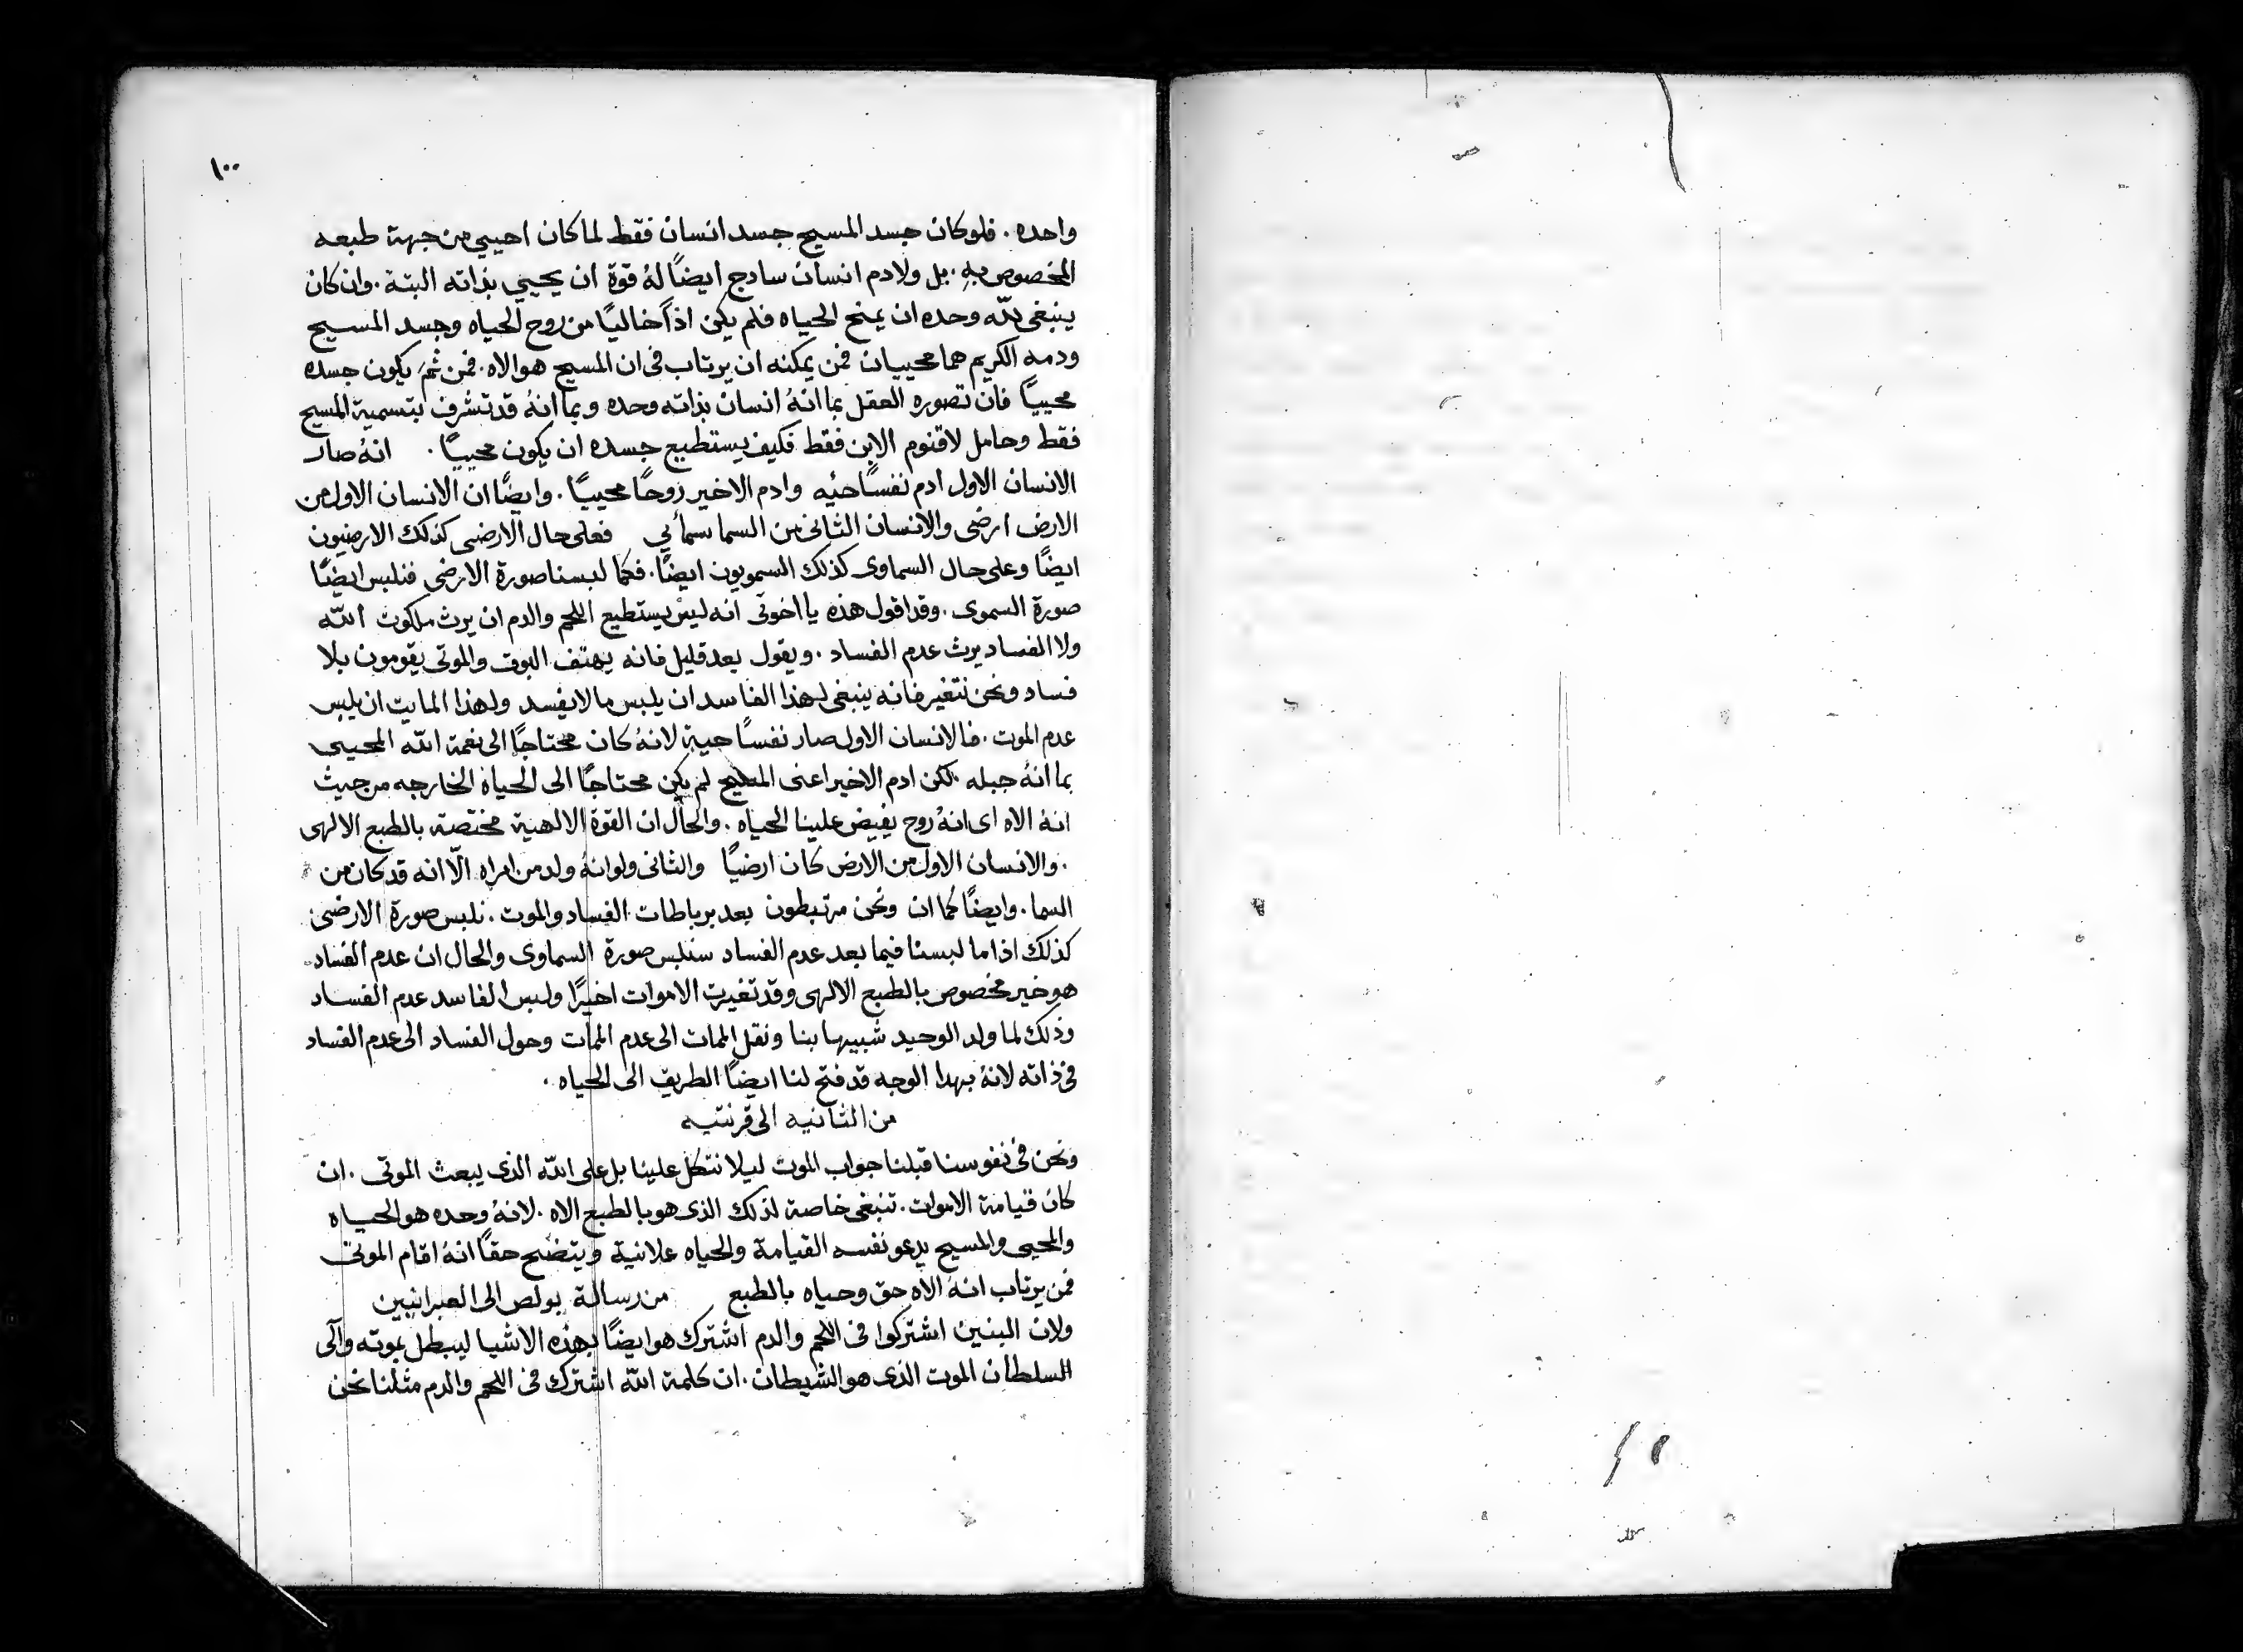 ١٠٠
واحده . فلو كان جسد المسيح جسد انسان فقط لما كان احيي من جهة طبعه
المخصوص به . بل ولا دم انسان سادج ايضًا لهُ قوة ان يحيي بذاته البتة . وان كان
ينبغى لله وحده ان يمنح الحياه فلم يكن اذًا خاليًا من روح الحياه وجسد المسيح
ودمه الكريم هما محييان فمن يمكنه ان يرتاب فى ان المسيح هو الاه . فمن ثم يكون جسده
محييًا فان تصوره العقل بما انهُ انسان بذاته وحده وبما انهُ قد تشرف بتسمية المسيح
فقط وحامل لاقنوم الابن فقط فكيف يستطيع جسده ان يكون محييًا . انهُ صار
الانسان الاول ادم نفسًا حيه وادم الاخير روحًا محييًا . وايضًا ان الانسان الاول من
الارض ارضى والانسان الثانى من السما سمائي فعلى حال الارضى كذلك الارضيون
ايضًا وعلى حال السماوى كذلك السمويون ايضًا . فكما لبسنا صورة الارضى فنلبس ايضًا
صورة السموى . وقد اقول هذه يا اخوتى انه ليس يستطيع اللحم والدم ان يرث ملكوت الله
ولا الفساد يرث عدم الفساد . ويقول بعد قليل فانه يهتف البوق والموتى يقومون بلا
فساد ونحن نتغير فانه ينبغى لهذا الفاسد ان يلبس ما لا يفسد ولهذا المايت ان يلبس
عدم الموت . فالانسان الاول صار نفسًا حية لانهُ كان محتاجًا الى نعمة الله المحيى
بما انهُ جبله لكن ادم الاخير اعنى المسيح لم يكن محتاجًا الى الحياة الخارجه من حيث
انهُ الاه اى انهُ روح يفيض علينا الحياه . والحال ان القوة الالهية مختصة بالطبع الالهى
. والانسان الاول من الارض كان ارضيًا والثانى ولو انهُ ولد من امراه الّا انه قد كان من
السما . وايضًا كما ان ونحن مرتبطون بعد برباطات الفساد والموت . نلبس صورة الارضى
كذلك اذا ما لبسنا فيما بعد عدم الفساد سنلبس صورة السماوى والحال ان عدم الفساد
هو خير مخصوص بالطبع الالهى وقد تغيرت الاموات اخيرًا ولبس الفاسد عدم الفساد
وذلك لما ولد الوحيد شبيها بنا ونقل الممات الى عدم الممات وحول الفساد الى عدم الفساد
فى ذاته لانهُ بهدا الوجه قد فتح لنا ايضًا الطريق الى الحياه .
من الثانيه الى قرنتيه
ونحن فى نفوسنا قبلنا جواب الموت ليلا نتكل علينا بل على الله الذى يبعث الموتى . ان
كان قيامة الاموات . تنبغى خاصة لذلك الذى هو بالطبع الاه . لانهُ وحده هو الحياه
والمحيى والمسيح يدعو نفسه القيامة والحياه علانية ويتضح حقًا انهُ اقام الموتى
فمن يرتاب انهُ الاه حق وحياه بالطبع من رسالة بولص الى العبرانيين
ولان البنين اشتركوا فى اللحم والدم اشترك هو ايضًا بهذه الاشيا ليبطل بموته والى
السلطان الموت الذى هو الشيطان . ان كلمة الله اشترك فى اللحم والدم مثلنا نحن